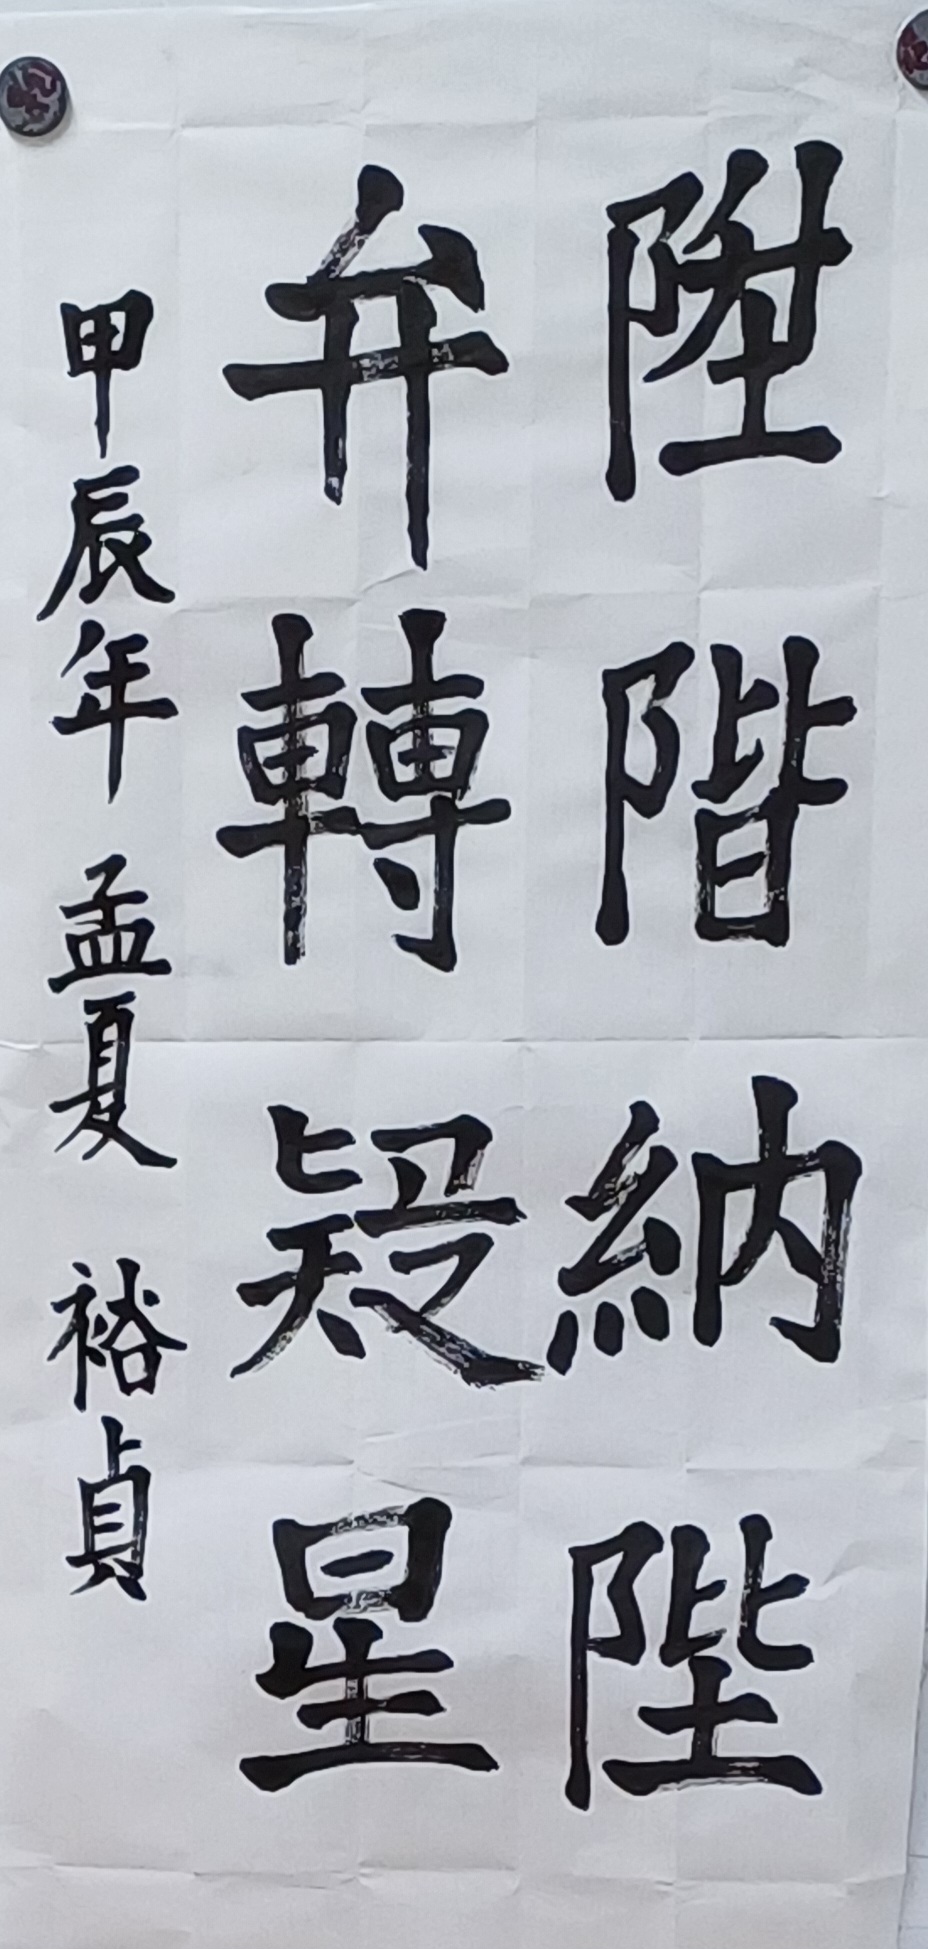 陞階納陛
弁轉疑星
甲辰年 孟夏 裕貞